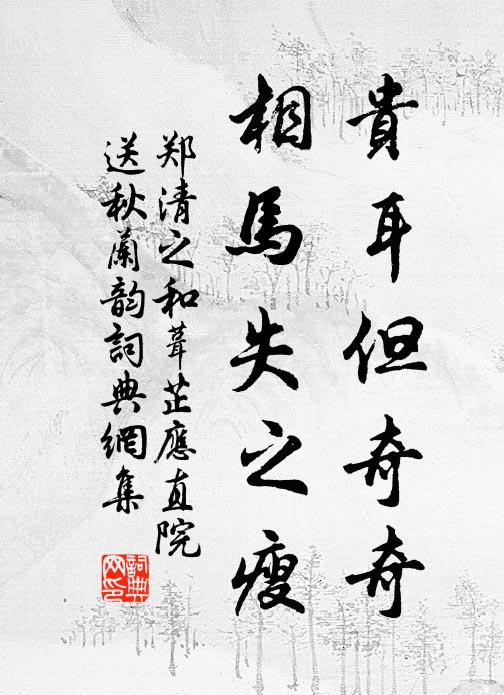 貴耳但奇奇
相馬失之瘦
郑清之和葺芷應直院
送秋蘭韵詞典網集
詞典网印